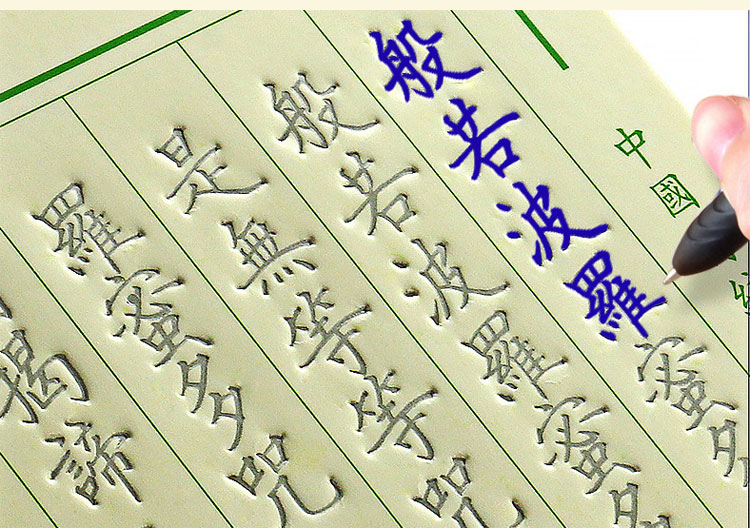 中國
般若波羅蜜多
般若波羅蜜多
是無等等咒
羅蜜多咒
揭諦